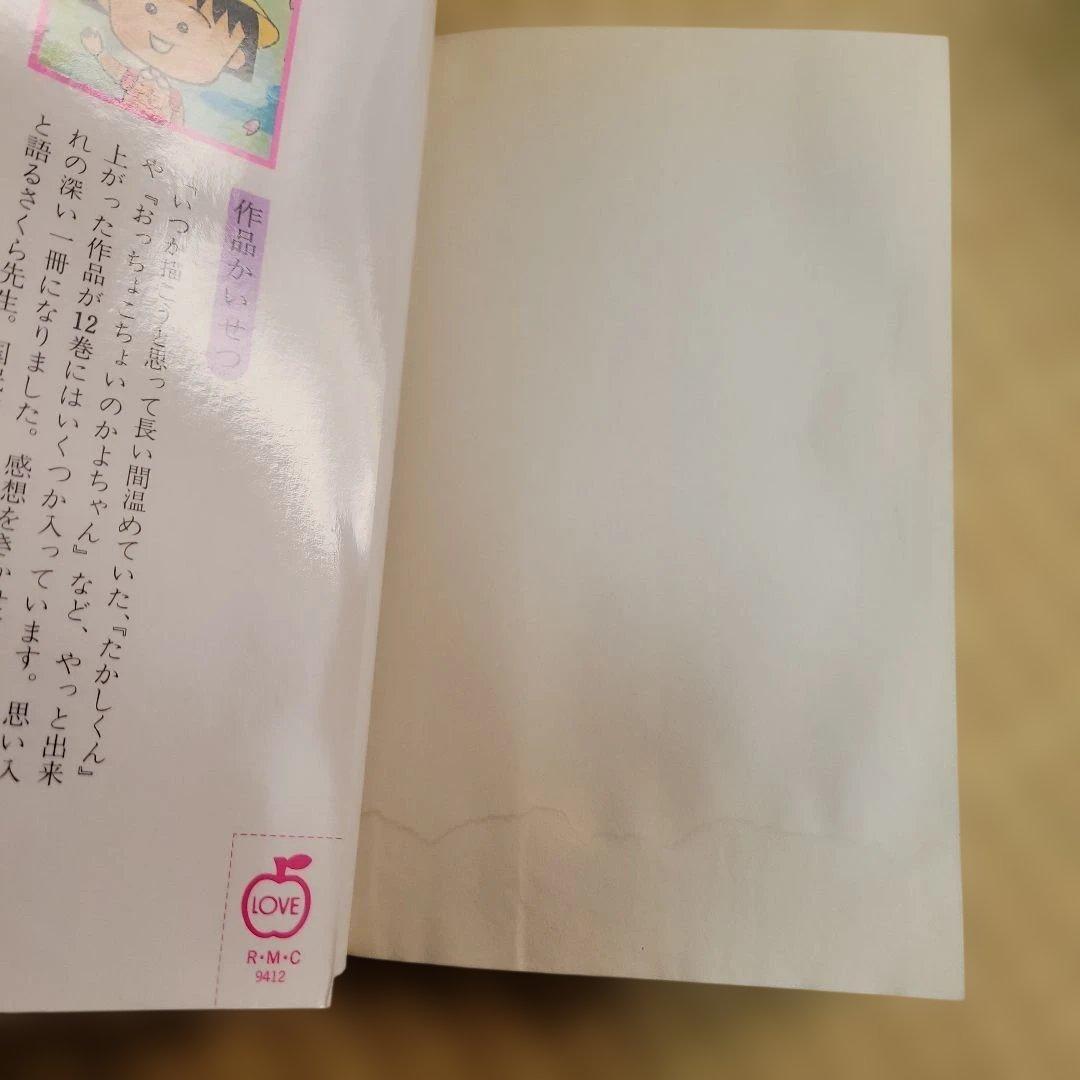 作品かいせつ
「いつか描こうと思って長い間温めていた、『たかしくん』
や『おっちょこちょいのかよちゃん』など、やっと出来
上がった作品が12巻にはいくつか入っています。思い入
れの深い一冊になりました。感想を
と語るさくら先生。
LOVE
R・M・C
9412